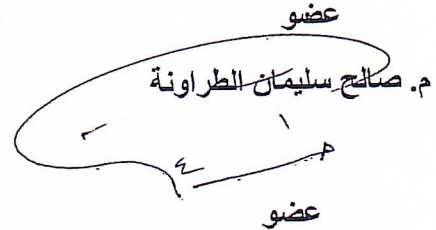 عضو
م. صالح سليمان الطراونة
عضو